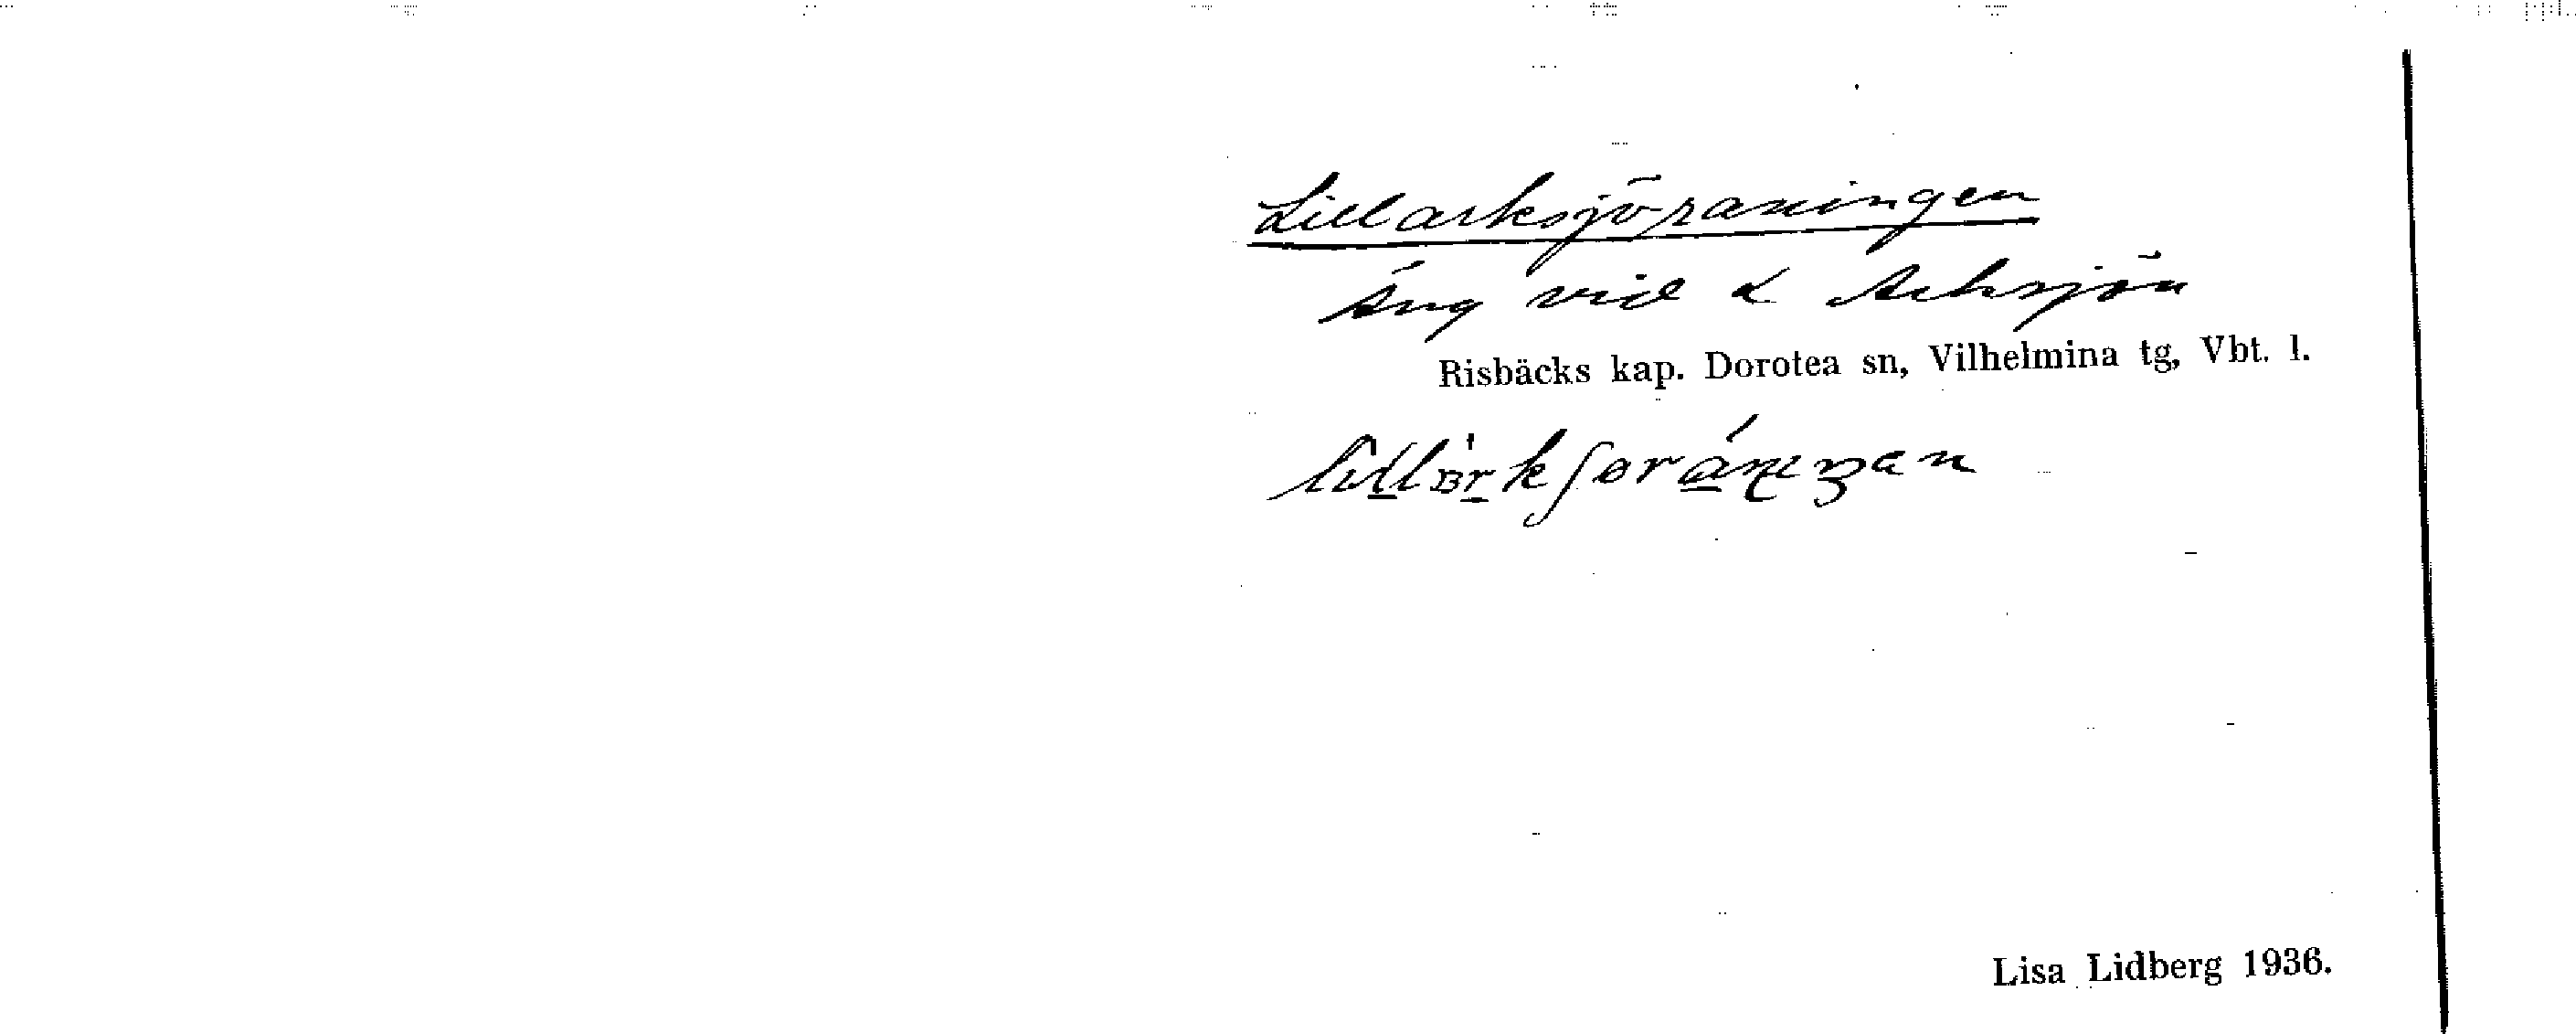 Lillarksjöraningen
Äng vid L Arksjön
Risbäcks kap. Dorotea sn, Vilhelmina tg, Vbt. l.
Lisa Lidberg 1936.